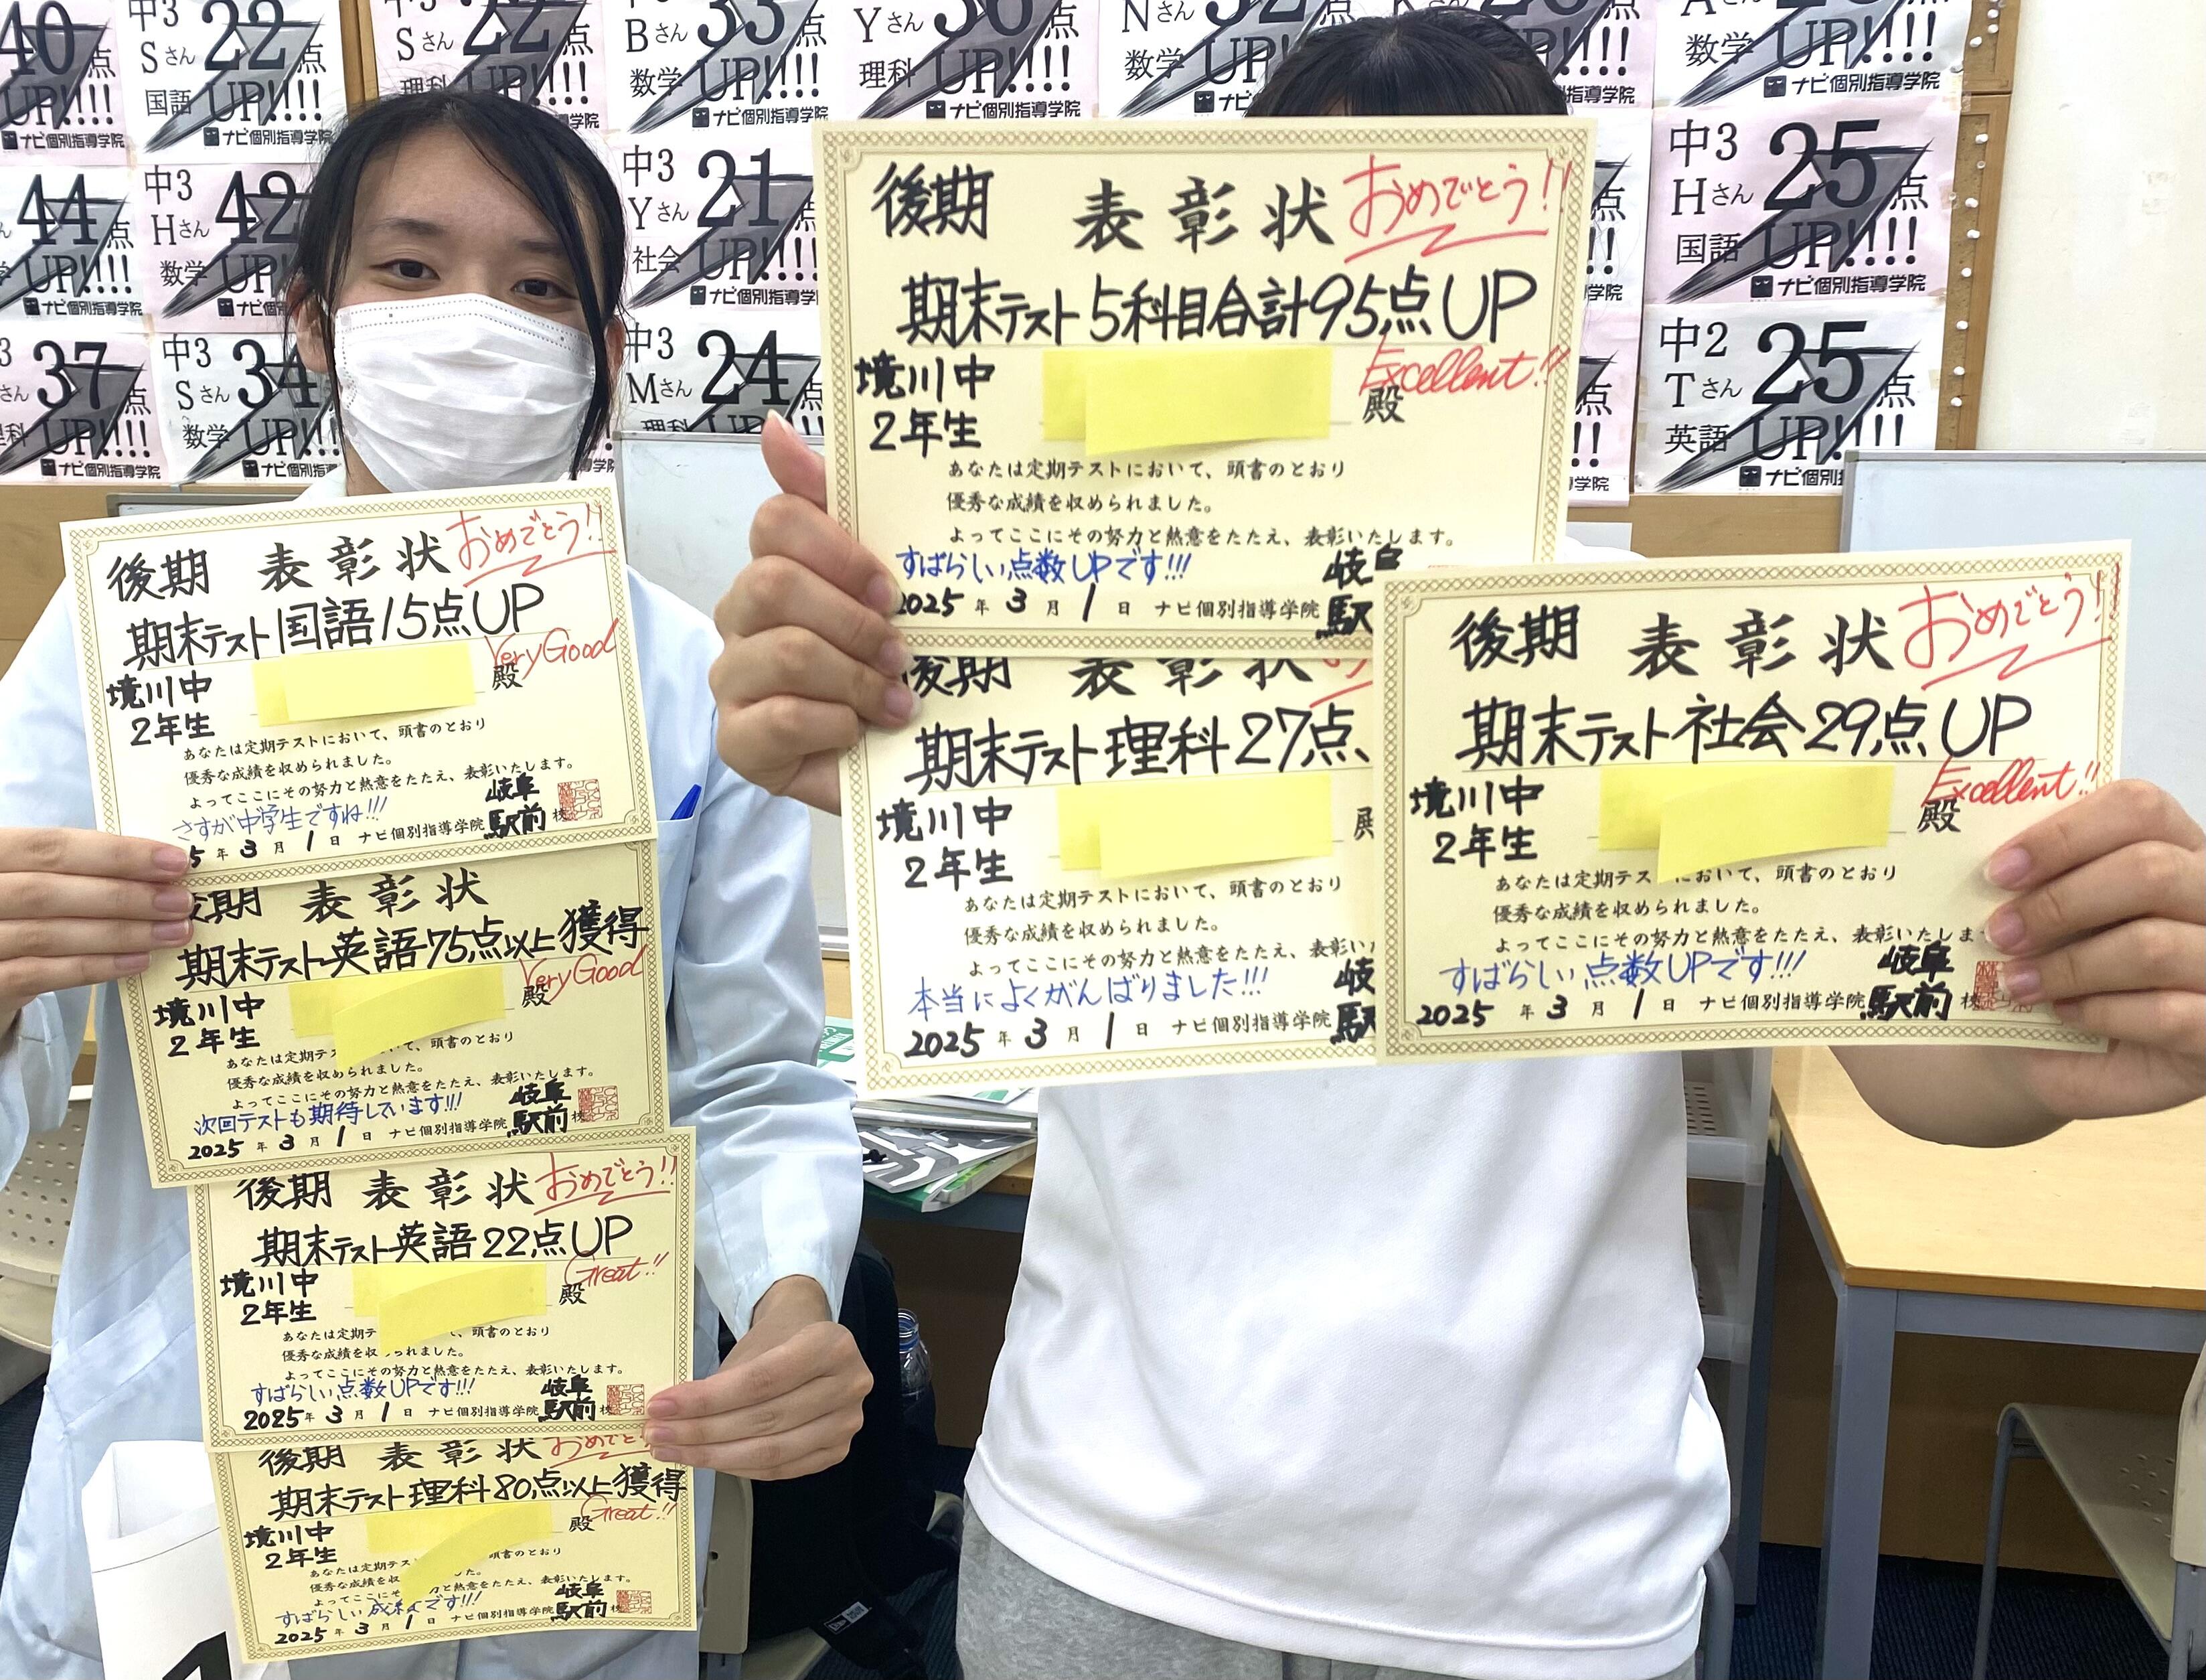 40点
UP!!!!
ナビ個別指導学院
中3
Sさん
国語
22点
UP!!!!
ナビ個別指導学院
中3
Sさん
理科
22点
中3
Bさん
数学
33点
UP!!!!
ナビ個別指導学院
Yさん
理科
36点
UP!!!!
ナビ個別指導学院
Nさん
数学
32点
UP!!!!
ナビ個別指導学院
点
!!!!
指導学院
Aさん
数学
点
UP!!!!
ナビ個別指導学院
44点
UP!!!!
ナビ個別指導学院
中3
Hさん
数学
42点
UP!!!!
ナビ個別指導学院
中3
Yさん
社会
21点
UP!!!!
ナビ個別指導学院
中3
Hさん
国語
25点
UP!!!!
ナビ個別指導学院
37点
UP!!!!
理科
ナビ個別指導学院
中3
Sさん
数学
34
UP!!!!
ナビ個別指導学院
中3
Mさん
理科
24点
UP!!!!
中2
Tさん
英語
25点
UP!!!!
ナビ個別
後期 表彰状 おめでとう!!
期末テスト国語15点UP
VeryGood
境川中
2年生
殿
あなたは定期テストにおいて、頭書のとおり
優秀な成績を収められました。
よってここにその努力と熱意をたたえ、表彰いたします。
さすが中学生ですね!!!
5年3月1日 ナビ個別指導学院 岐阜駅前校
後期 表彰状
期末テスト英語75点以上獲得
VeryGood
境川中
2年生
殿
あなたは定期テ て、頭書のとおり
優秀な成績を収められました。
よってここにその努力と熱意をたたえ、表彰いたします。
次回テストも期待しています!!!
2025年3月1日 ナビ個別指導学院 岐阜駅前校
後期 表彰状 おめでとう!!
期末テスト英語22点UP
Great!!
境川中
2年生
殿
あなたは定期テ 、頭書のとおり
優秀な成績を収められました。
よってここにその努力と熱意をたたえ、表彰いたします。
すばらしい点数UPです!!!
2025年3月1日 ナビ個別指導学院 岐阜駅前校
後期 表彰状 おめでとう
期末テスト理科80点以上獲得
Great!!
境川中
2年生
殿
あなたは定期テス 頭書のとおり
優秀な成績を収め た。
よってここにそ 力と熱意をたたえ、表彰いたします。
すばらしい成績です!!!
2025年3月1日 ナビ個別指導学院 岐阜駅前校
後期 表彰状 おめでとう!!
期末テスト5科目合計95点UP
Excellent!!
境川中
2年生
殿
あなたは定期テストにおいて、頭書のとおり
優秀な成績を収められました。
よってここにその努力と熱意をたたえ、表彰いたします。
すばらしい点数UPです!!!
2025年3月1日 ナビ個別指導学院 岐阜駅
後期 表彰状
期末テスト理科27点
境川中
2年生
殿
あなたは定期テストにおいて、頭書のとおり
優秀な成績を収められました。
よってここにその努力と熱意をたたえ、表彰い
本当によくがんばりました!!!
2025年3月1日 ナビ個別指導学院 岐駅
後期 表彰状 おめでとう!!
期末テスト社会29点UP
Excellent!!
境川中
2年生
殿
あなたは定期テス において、頭書のとおり
優秀な成績を収められました。
よってここにその努力と熱意をたたえ、表彰いたしま
すばらしい点数UPです!!!
2025年3月1日 ナビ個別指導学院 岐阜駅前校